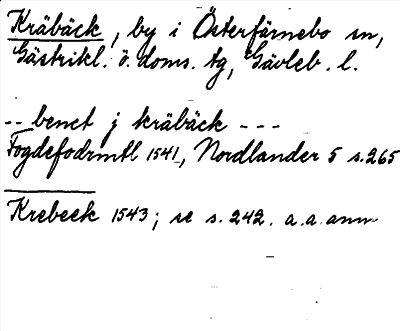 Kräbäck, by i Österfärnebo sn,
Gästrikl. ö. doms. tg, Gävleb. l.
-- benct j kräbäck ---
Fogdefodrmtl 1541, Nordlander 5 s. 265
Krebeck 1543; se s. 242. a.a. anm